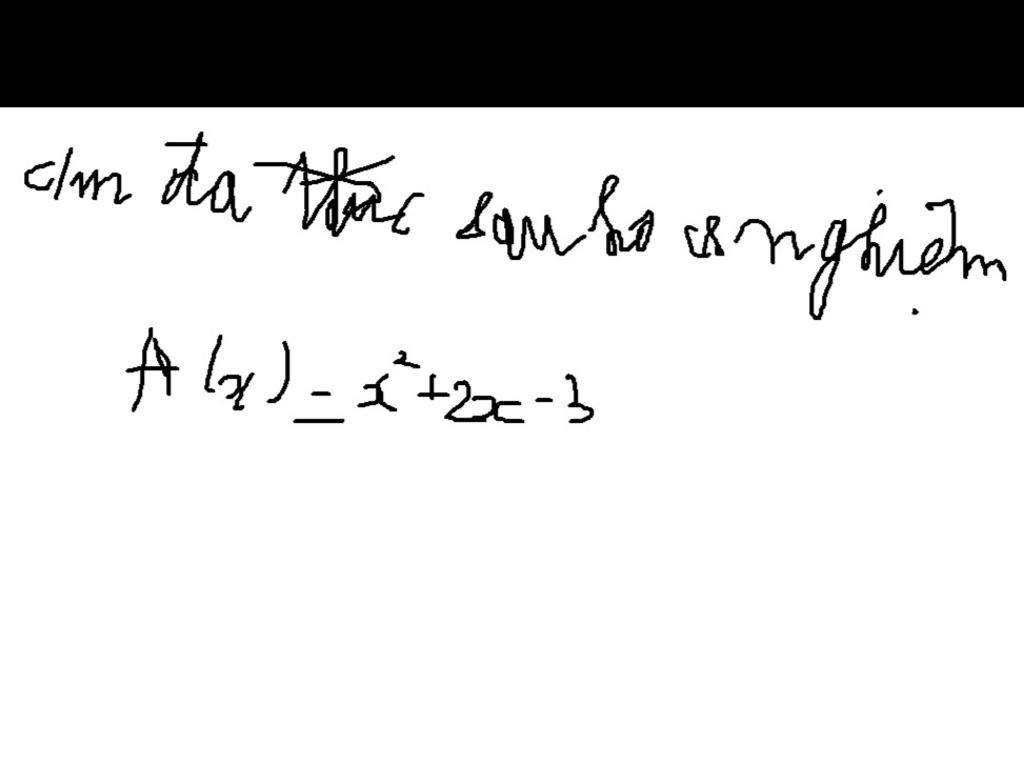 c/m đa thức sau ko có nghiệm
A(x) = x² + 2x - 3